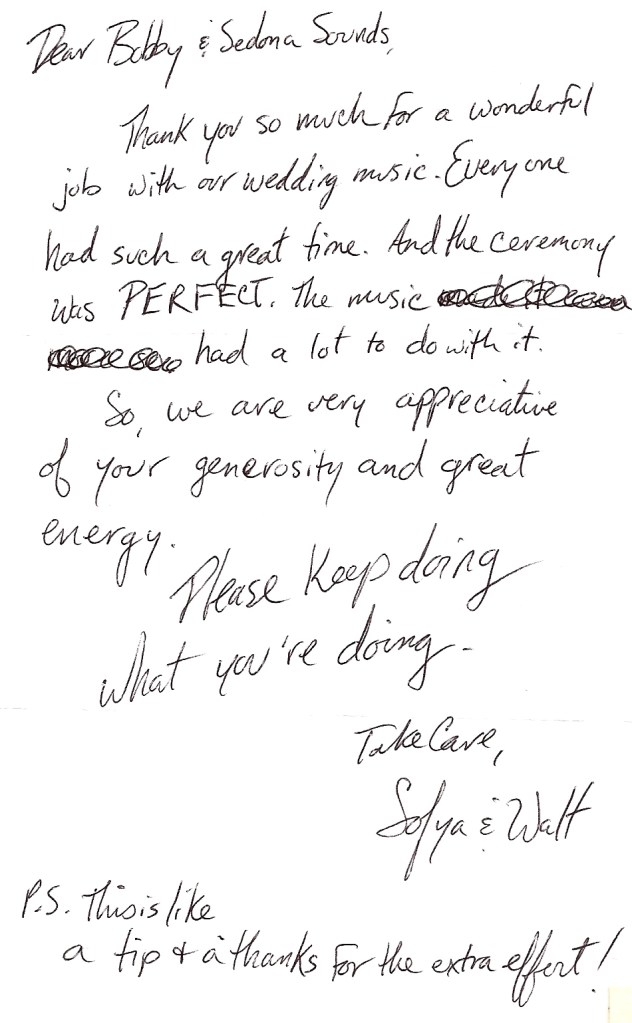 Dear Bobby & Sedona Sounds,
Thank you so much for a wonderful
job with our wedding music. Everyone
had such a great time. And the ceremony
was PERFECT. The music
had a lot to do with it.
So, we are very appreciative
of your generosity and great
energy.
Please Keep doing
what you're doing.
Take Care,
Sofya & Walt
P.S. This is like
a tip + a thanks For the extra effort!